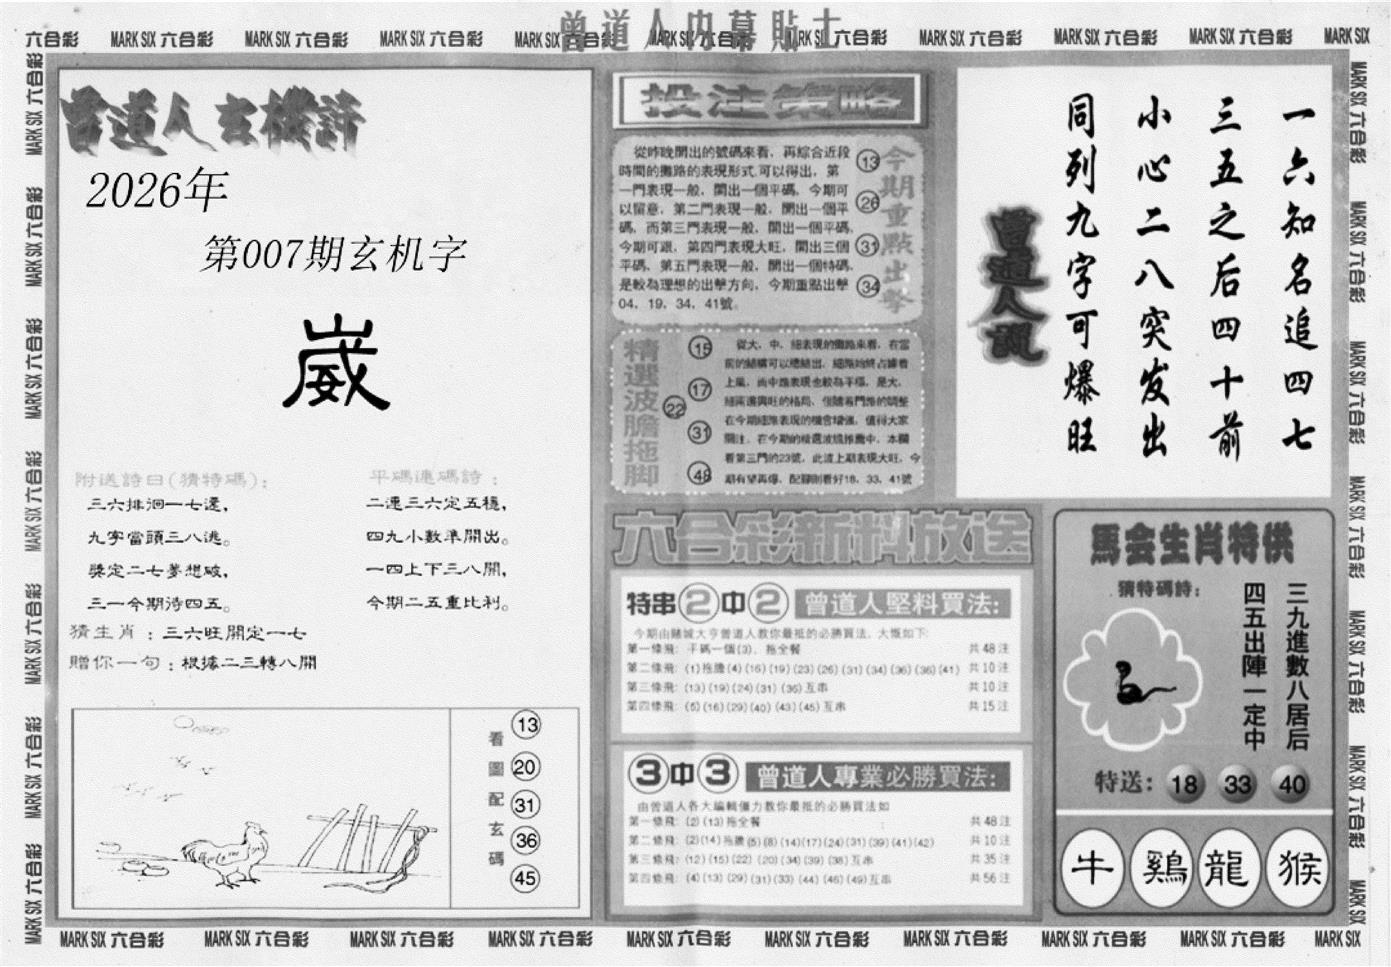 曾道人内幕貼士
六合彩 MARK SIX 六合彩 MARK SIX 六合彩 MARK SIX 六合彩 MARK SIX 六合彩 MARK SIX 六合彩 MARK SIX 六合彩 MARK SIX 六合彩 MARK SIX 六合彩 MARK SIX 六合彩 MARK SIX
曾道人玄機詩
2026年
第007期玄机字
崴
附送詩曰(猜特碼):
三六排洄一七還,
九字當頭三八逃。
獎定二七夢想破,
三一今期待四五。
平碼連碼詩:
二連三六定五穩,
四九小數準開出。
一四上下三八開,
今期二五重比利。
猜生肖:三六旺開定一七
贈你一句:根據二三轉八開
看圖配玄碼
13
20
31
36
45
投注策略
從昨晚開出的號碼來看，再綜合近段
時間的攤路的表現形式,可以得出，第
一門表現一般，開出一個平碼，今期可
以留意，第二門表現一般，開出一個平
碼，而第三門表現一般，開出一個平碼，
今期可跟，第四門表現大旺，開出三個
平碼，第五門表現一般，開出一個特碼，
是較為理想的出擊方向，今期重點出擊
04，19，34，41號。
今期重點出擊
13
26
31
34
精選波膽拖脚
15
17
22
31
48
從大，中，細表現的攤路來看，在當
前的結構可以總結出，細路始終占據着
上風，而中路表現也較為平穩，是大，
細兩邊興旺的格局，但隨着門路的調整
在今期細路表現的機會增強，值得大家
關注，在今期的精選波膽推薦中，本欄
看第三門的23號，此波上期表現大旺，今
期有望再爆，配腳則看好18，33，41號
六合彩新料放送
特串2中2 曾道人堅料買法:
今期由賭城大亨曾道人教你最抵的必勝買法，大慨如下:
第一條飛: 平碼一個(3)，拖全餐 共48注
第二條飛: (1)拖膽(4)(16)(19)(23)(26)(31)(34)(36)(36)(41) 共10注
第三條飛: (13)(19)(24)(31)(36)互串 共10注
第四條飛: (6)(16)(29)(40)(43)(45)互串 共15注
3中3 曾道人專業必勝買法:
由曾道人各大編輯僵力教你最抵的必勝買法如
第一條飛: (2)(13)拖全餐 共48注
第二條飛: (2)(14)拖膽(5)(8)(14)(17)(24)(31)(39)(41)(42) 共10注
第三條飛: (12)(15)(22)(20)(34)(39)(38)互串 共35注
第四條飛: (4)(13)(29)(31)(33)(44)(46)(49)互串 共56注
一六知名追四七
三五之后四十前
小心二八突发出
同列九字可爆旺
曾道人說
馬会生肖特供
猜特碼詩:
三九進數八居后
四五出陣一定中
特送: 18 33 40
牛 鷄 龍 猴
MARK SIX 六合彩 MARK SIX 六合彩 MARK SIX 六合彩 MARK SIX 六合彩 MARK SIX 六合彩 MARK SIX 六合彩 MARK SIX 六合彩 MARK SIX 六合彩 MARK SIX 六合彩 MARK SIX